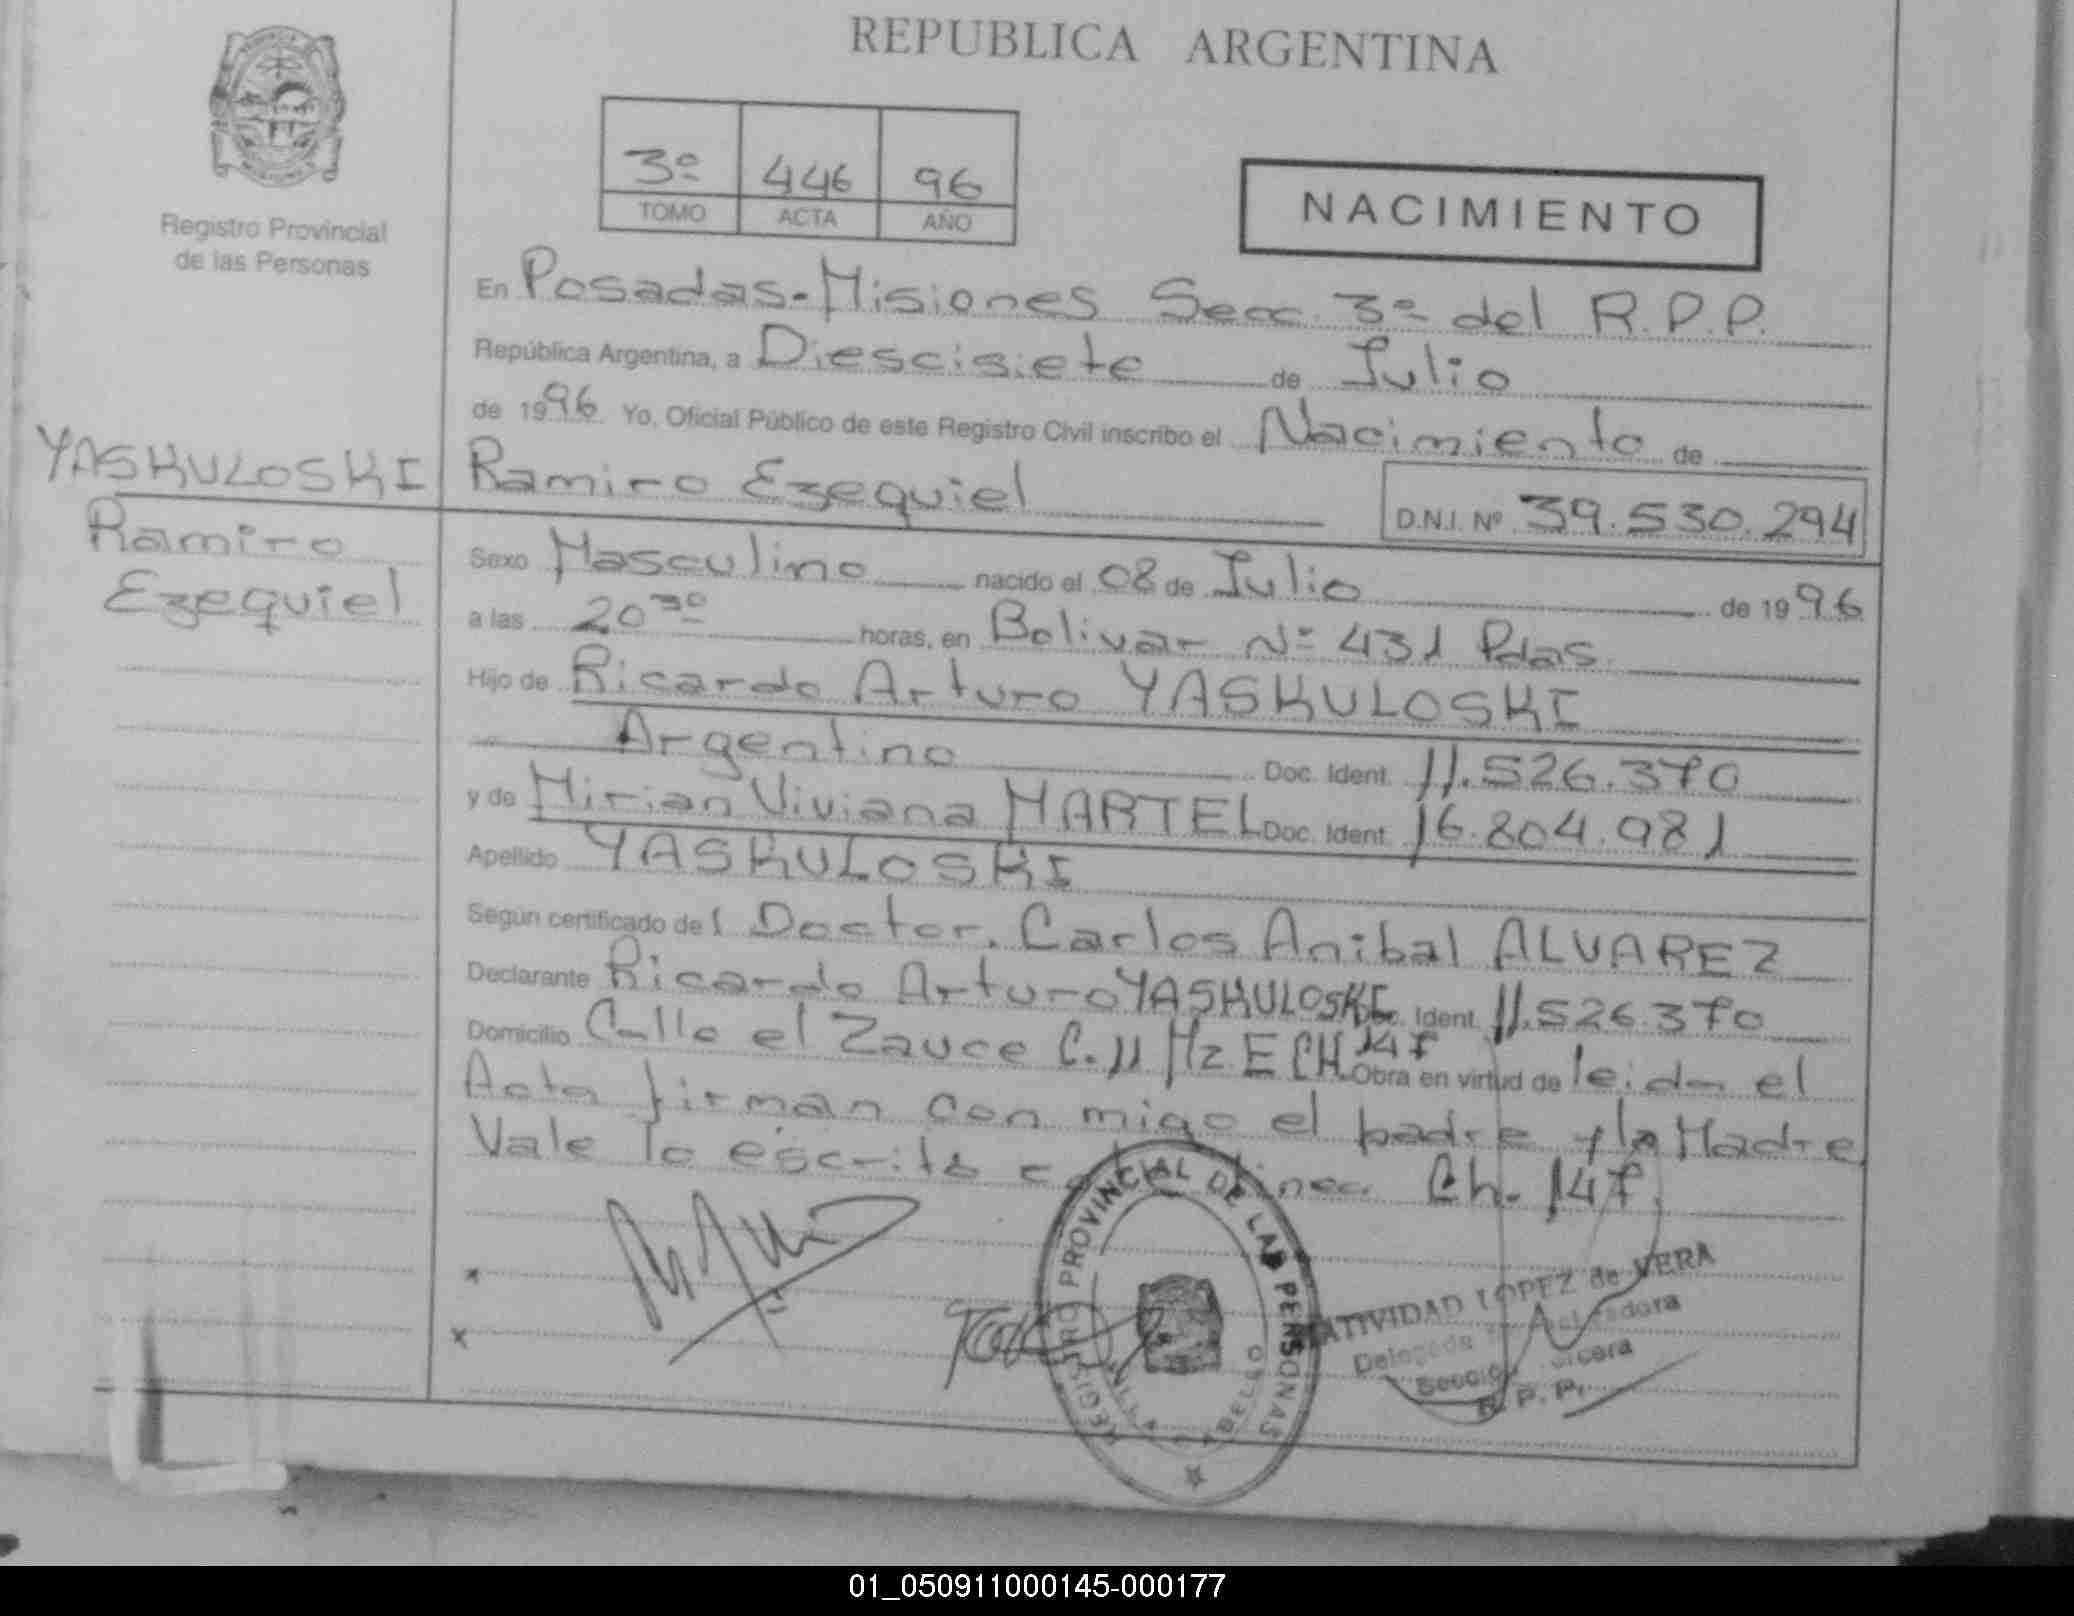 REPUBLICA ARGENTINA
Registro Provincial
de las Personas
3º 446 96
TOMO ACTA AÑO
NACIMIENTO
En Posadas-Misiones Secc. 3º del R.P.P.
República Argentina, a Diescisiete de Julio
de 1996 Yo, Oficial Público de este Registro Civil inscribo el Nacimiento de
YASKULOSKI
Ramiro
Ezequiel
Ramiro Ezequiel D.N.I. Nº 39.530.294
Sexo Masculino nacido el 08 de Julio de 1996
a las 20 30 horas, en Bolivar Nº 431 Pdas.
Hijo de Ricardo Arturo YASKULOSKI
Argentino Doc. Ident. 11.526.370
y de Mirian Viviana MARTEL Doc. Ident. 16.804.981
Apellido YASKULOSKI
Según certificado del Doctor. Carlos Anibal ALVAREZ
Declarante Ricardo Arturo YASKULOSKI Doc. Ident. 11.526.370
Domicilio Calle el Zauce C.11 Mz.E CH.147 Obra en virtud de leida el
Acta firman con migo el padre y la Madre
Vale lo escrito linea Ch. 147.
REGISTRO PROVINCIAL DE LAS PERSONAS
VILLA CABELLO
NATIVIDAD LOPEZ de VERA
Delegada
Sección Tercera
R. P. P.
01_050911000145-000177